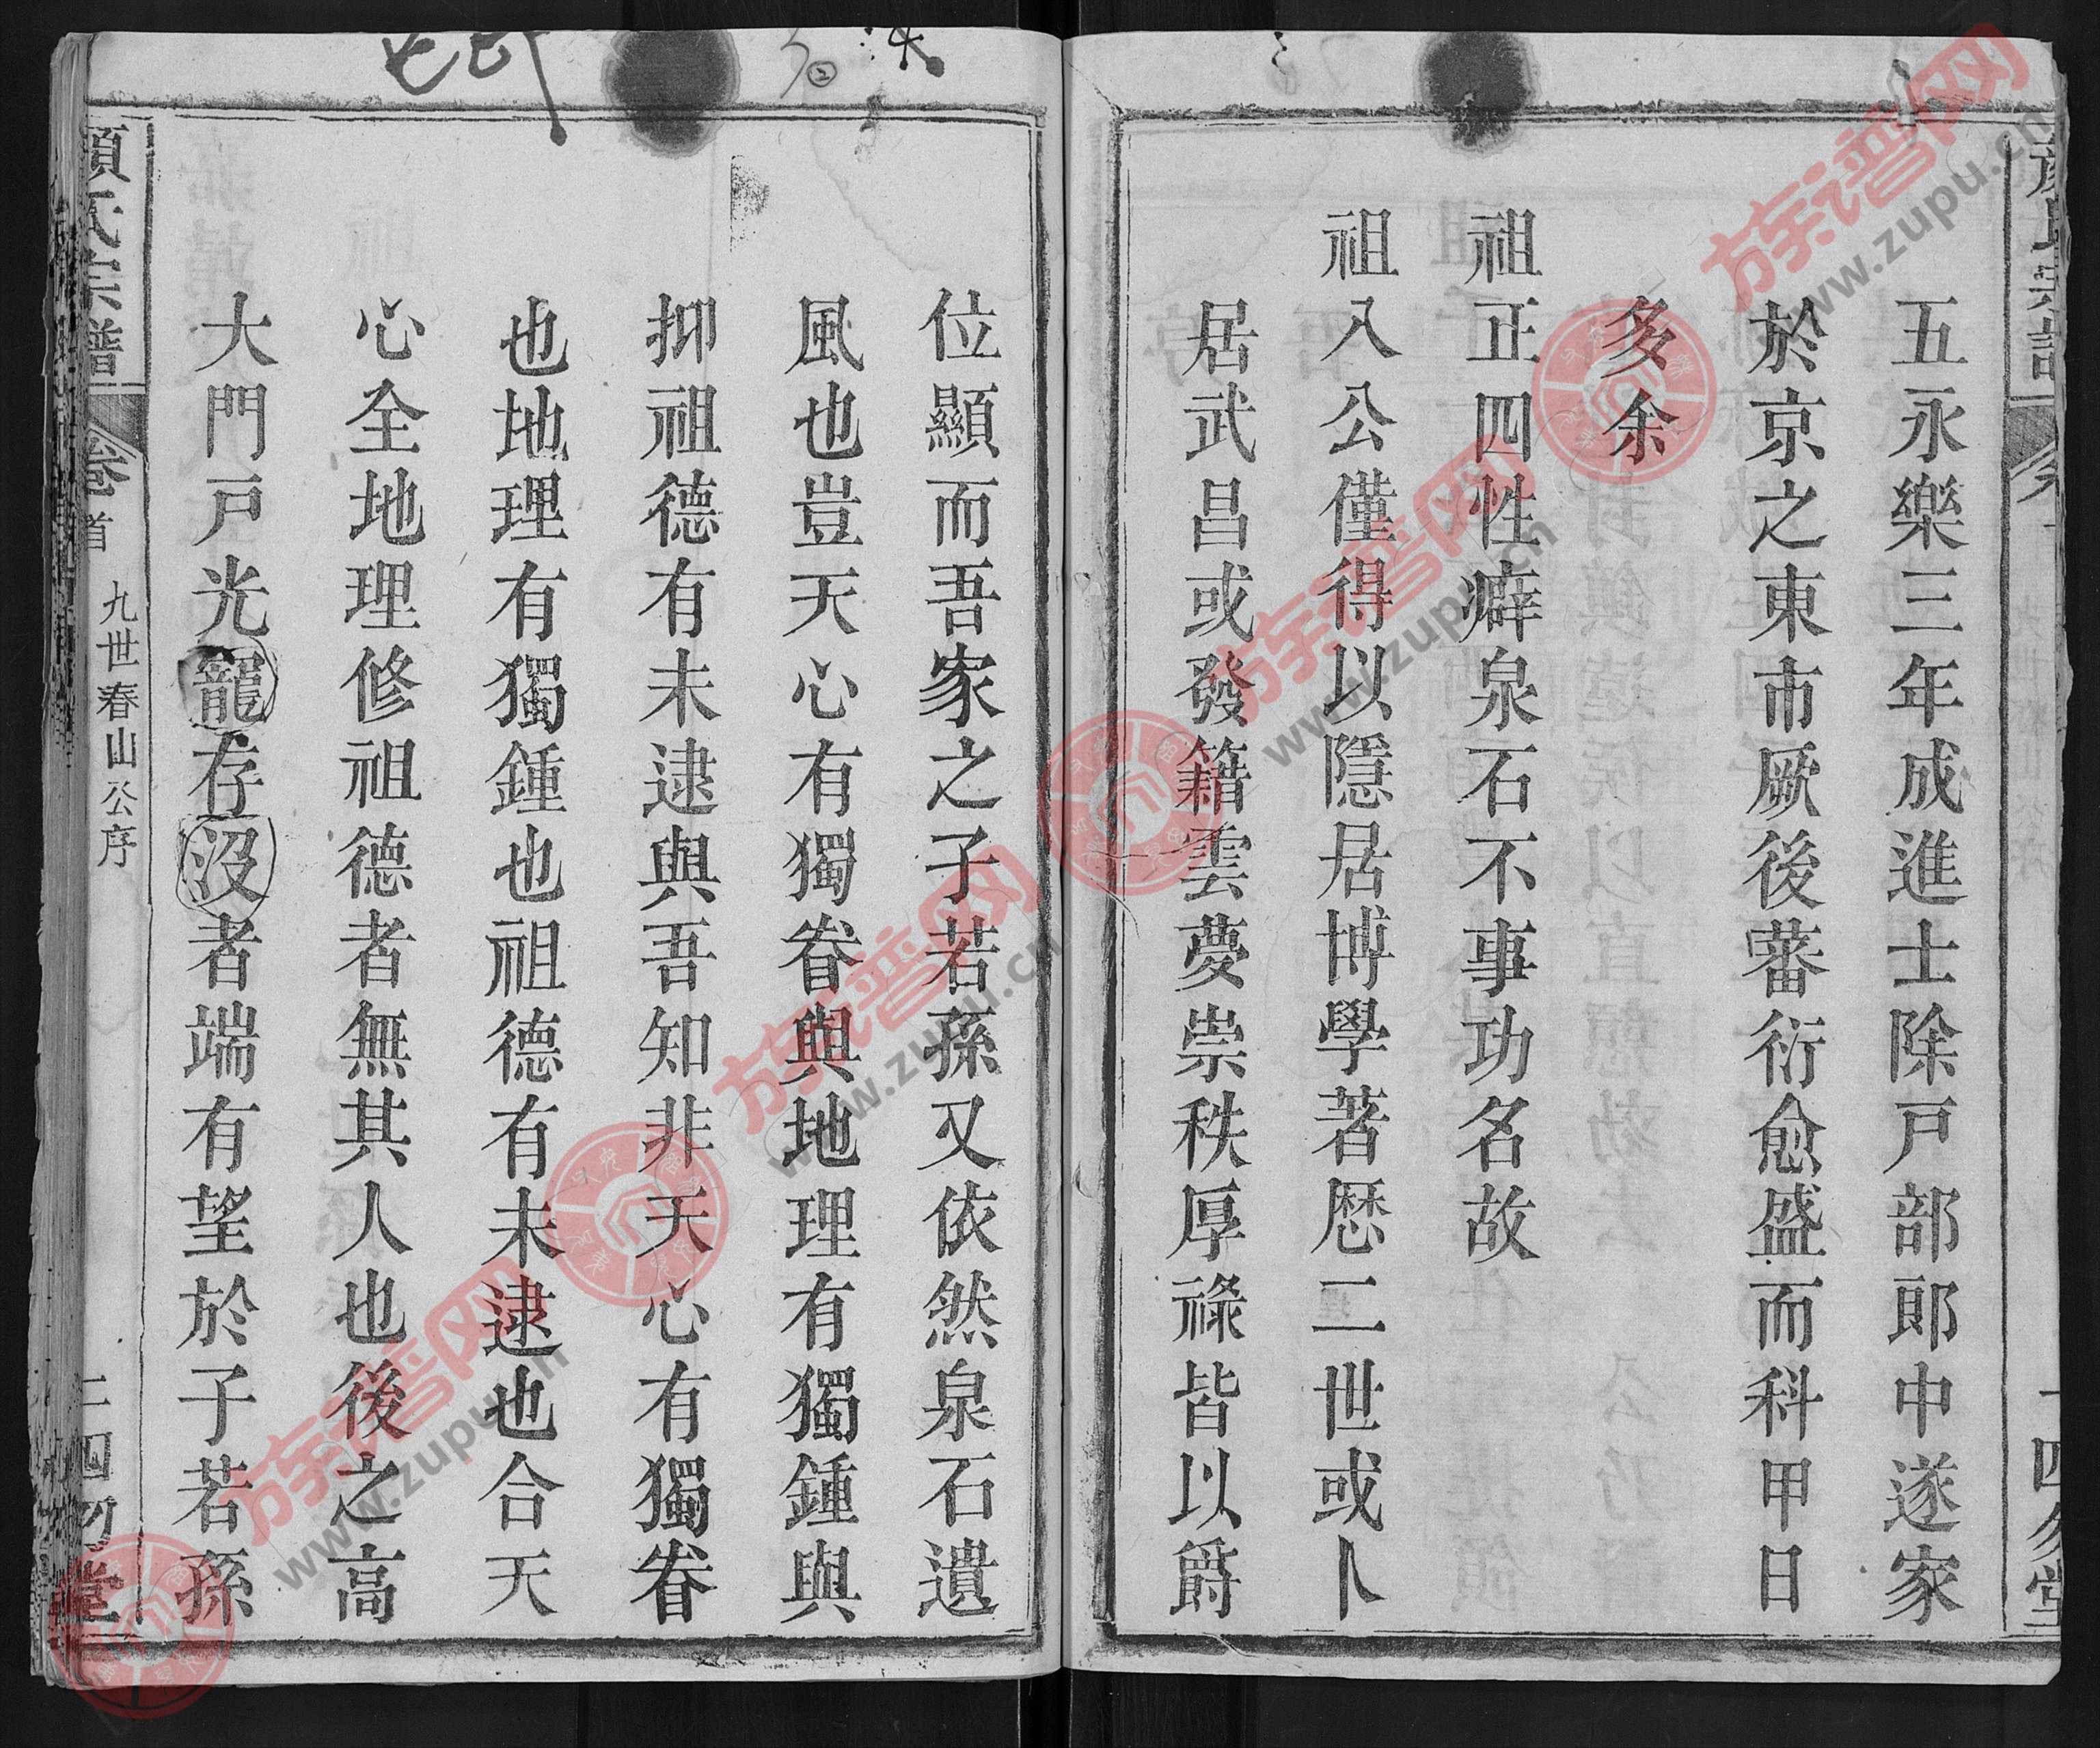 五永樂三年成進士除戶部郎中遂家
於京之東市厥後蕃衍愈盛而科甲日
多余
祖正四性癖泉石不事功名故
祖入公僅得以隱居博學著歷二世或卜
居武昌或發籍雲夢崇秩厚祿皆以爵
四勿堂
位顯而吾家之子若孫又依然泉石遺
風也豈天心有獨眷與地理有獨鍾與
抑祖德有未逮與吾知非天心有獨眷
也地理有獨鍾也祖德有未逮也合天
心全地理修祖德者無其人也後之高
大門戸光寵存沒者端有望於子若孫
氏宗譜
卷首
九世春山公序
四勿堂
族谱网
www.zupu.cn
族谱网
www.zupu.cn
族谱网
www.zupu.cn
族谱网
www.zupu.cn